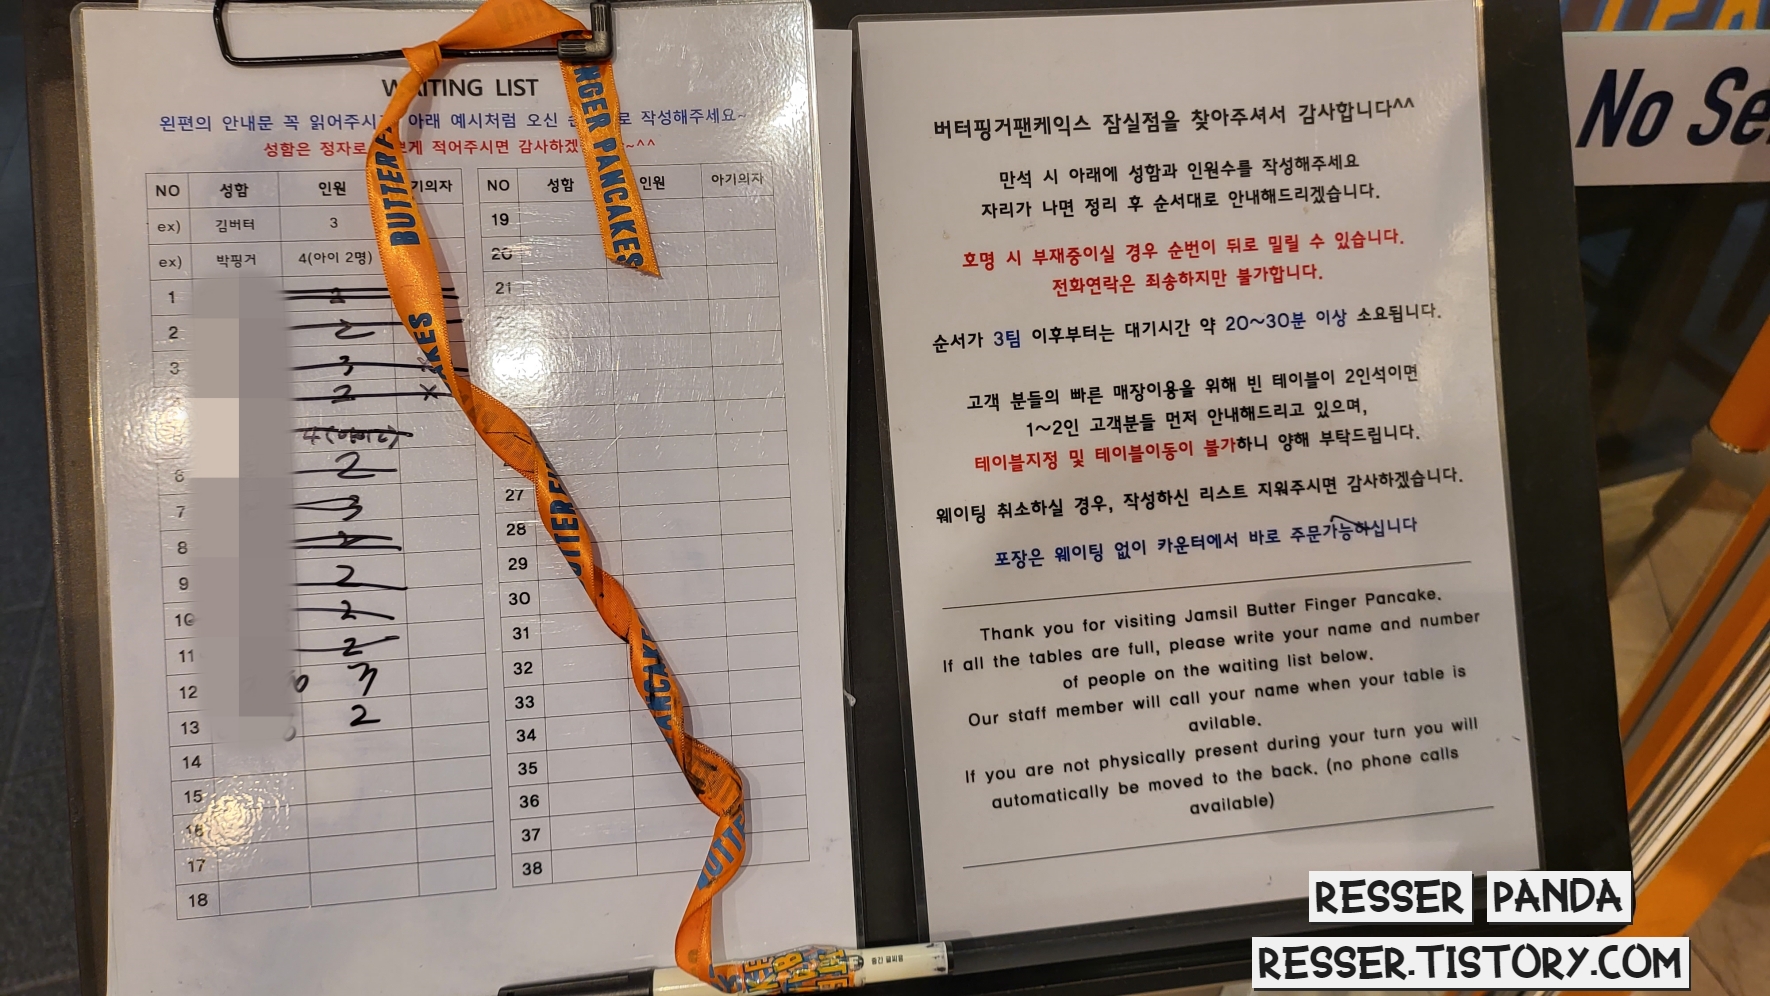 WAITING LIST
왼편의 안내문 꼭 읽어주시 아래 예시처럼 오신 로 작성해주세요~
성함은 정자로 게 적어주시면 감사하겠 ~^^
NO 성함 인원 기의자
ex) 김버터 3
ex) 박핑거 4(아이 2명)
1 2
2 2
3 3
2 X
4(아이2)
6 2
7 3
8 2
9 2
10 2
11 2
12 3
13 2
14
15
16
17
18
NO 성함 인원 아기의자
19
20
21
27
28
29
30
31
32
33
34
35
36
37
38
BUTTERF
NGER PANCAKES
AKES
UTTERF
ANCAK
BUTTE
버터핑거팬케익스 잠실점을 찾아주셔서 감사합니다^^
만석 시 아래에 성함과 인원수를 작성해주세요
자리가 나면 정리 후 순서대로 안내해드리겠습니다.
호명 시 부재중이실 경우 순번이 뒤로 밀릴 수 있습니다.
전화연락은 죄송하지만 불가합니다.
순서가 3팀 이후부터는 대기시간 약 20~30분 이상 소요됩니다.
고객 분들의 빠른 매장이용을 위해 빈 테이블이 2인석이면
1~2인 고객분들 먼저 안내해드리고 있으며,
테이블지정 및 테이블이동이 불가하니 양해 부탁드립니다.
웨이팅 취소하실 경우, 작성하신 리스트 지워주시면 감사하겠습니다.
포장은 웨이팅 없이 카운터에서 바로 주문가능하십니다
Thank you for visiting Jamsil Butter Finger Pancake.
If all the tables are full, please write your name and number
of people on the waiting list below.
Our staff member will call your name when your table is
avilable.
If you are not physically present during your turn you will
automatically be moved to the back. (no phone calls
available)
No Se
RESSER PANDA
RESSER.TISTORY.COM